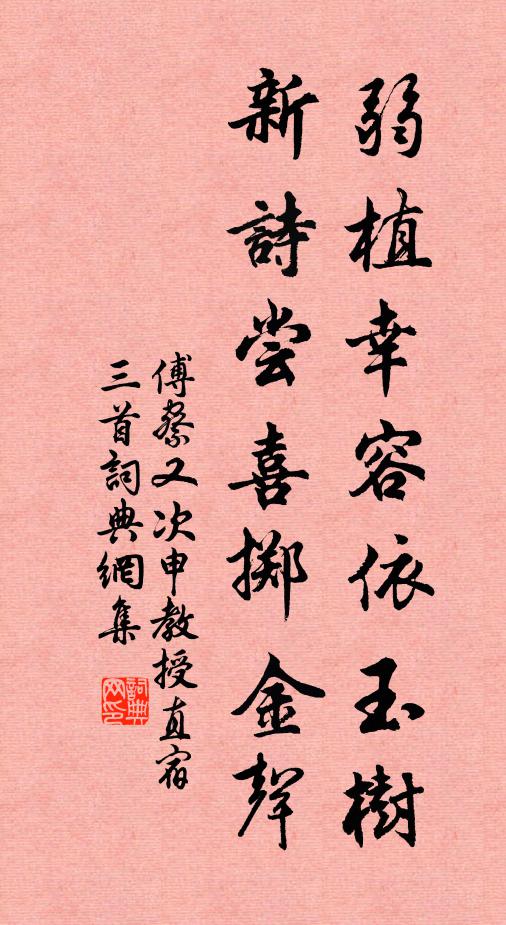 弱植幸容依玉樹
新詩尝喜掷金聲
傅察又次申教授直宿
三首詞典網集
詞典
网印